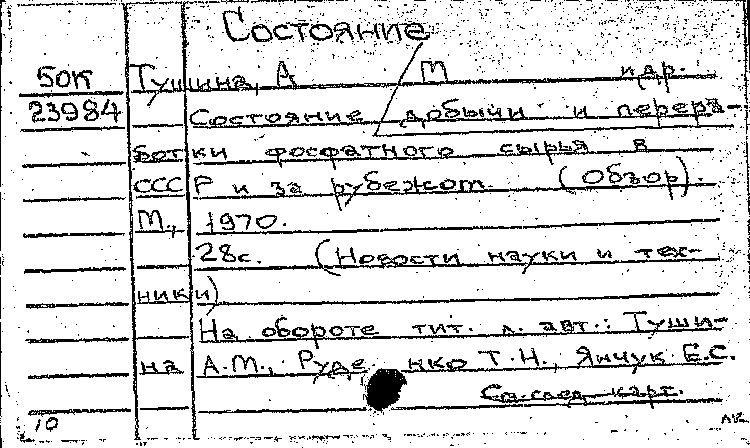 Состояние
БОК Тушина, А М и др.
23984 Состояние добычи и перера-
ботки фосфатного сырья в
СССР и за рубежом. (Обзор).
М., 1970.
28с. (Новости науки и тех-
ники)
На обороте тит. л. авт.: Туши-
на А.М., Руденко Т.Н., Янчук Е.С.
См. след. карт.
10